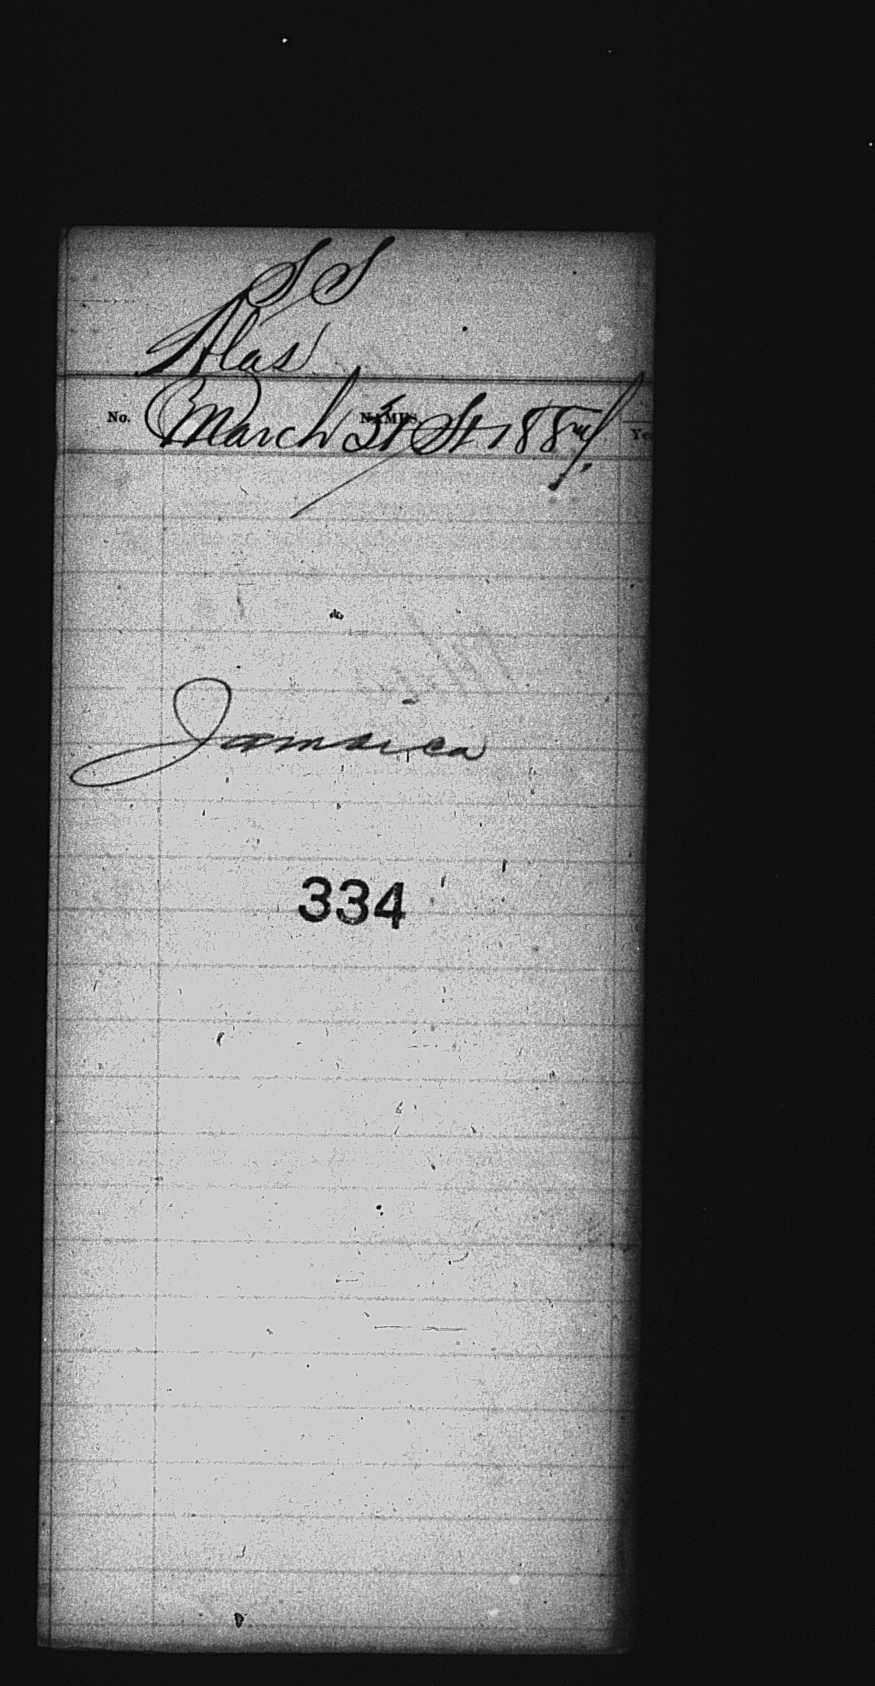 SS
Alas
No. NAMES
March 31 St 188
Jamaica
334